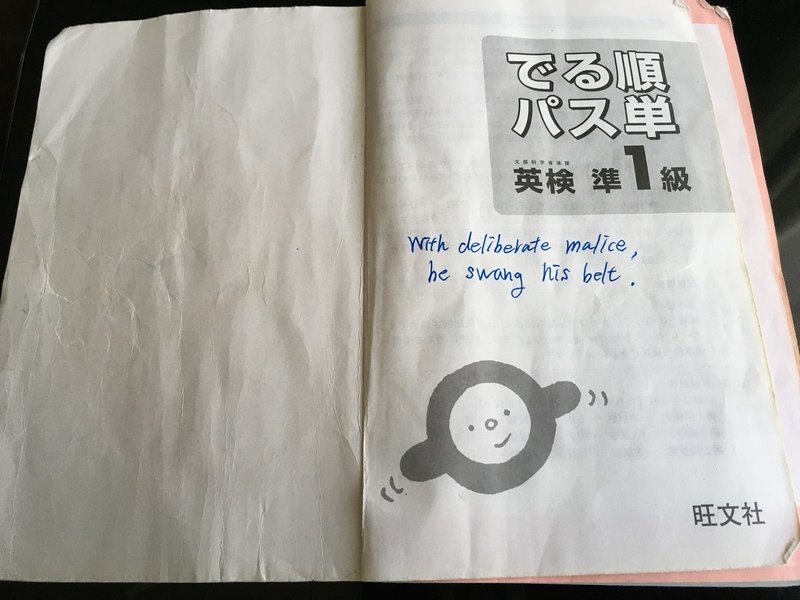 でる順
パス単
文部科学省後援
英検 準1級
With deliberate malice,
he swang his belt.
旺文社